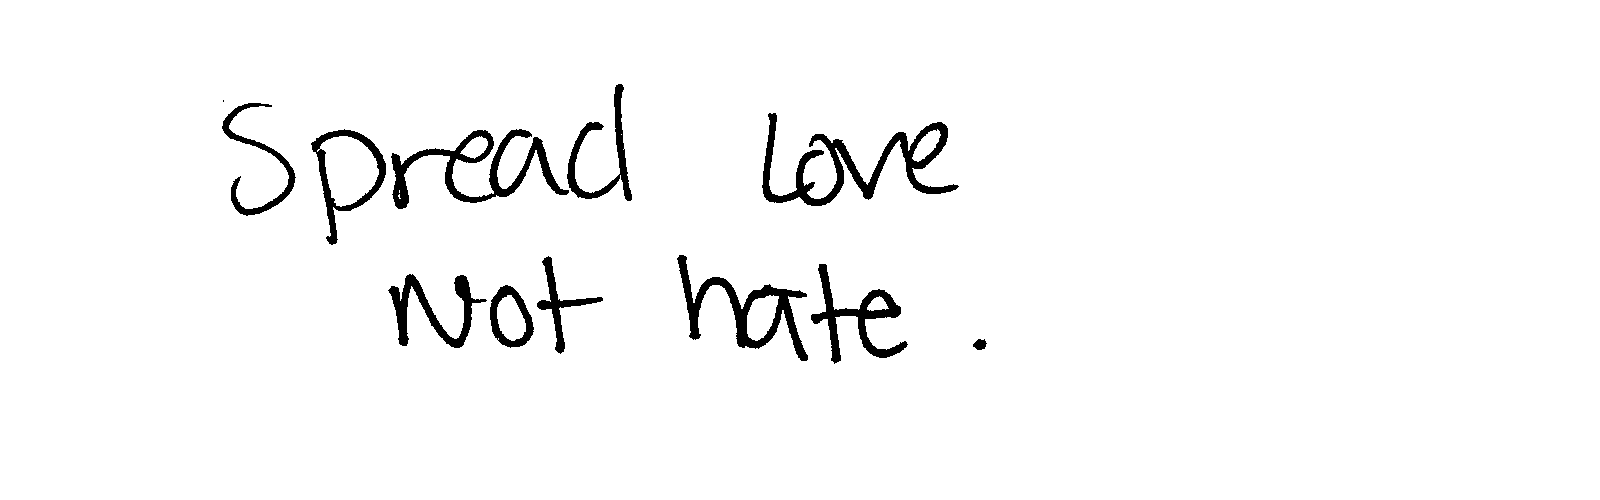 Spread love
Not hate.